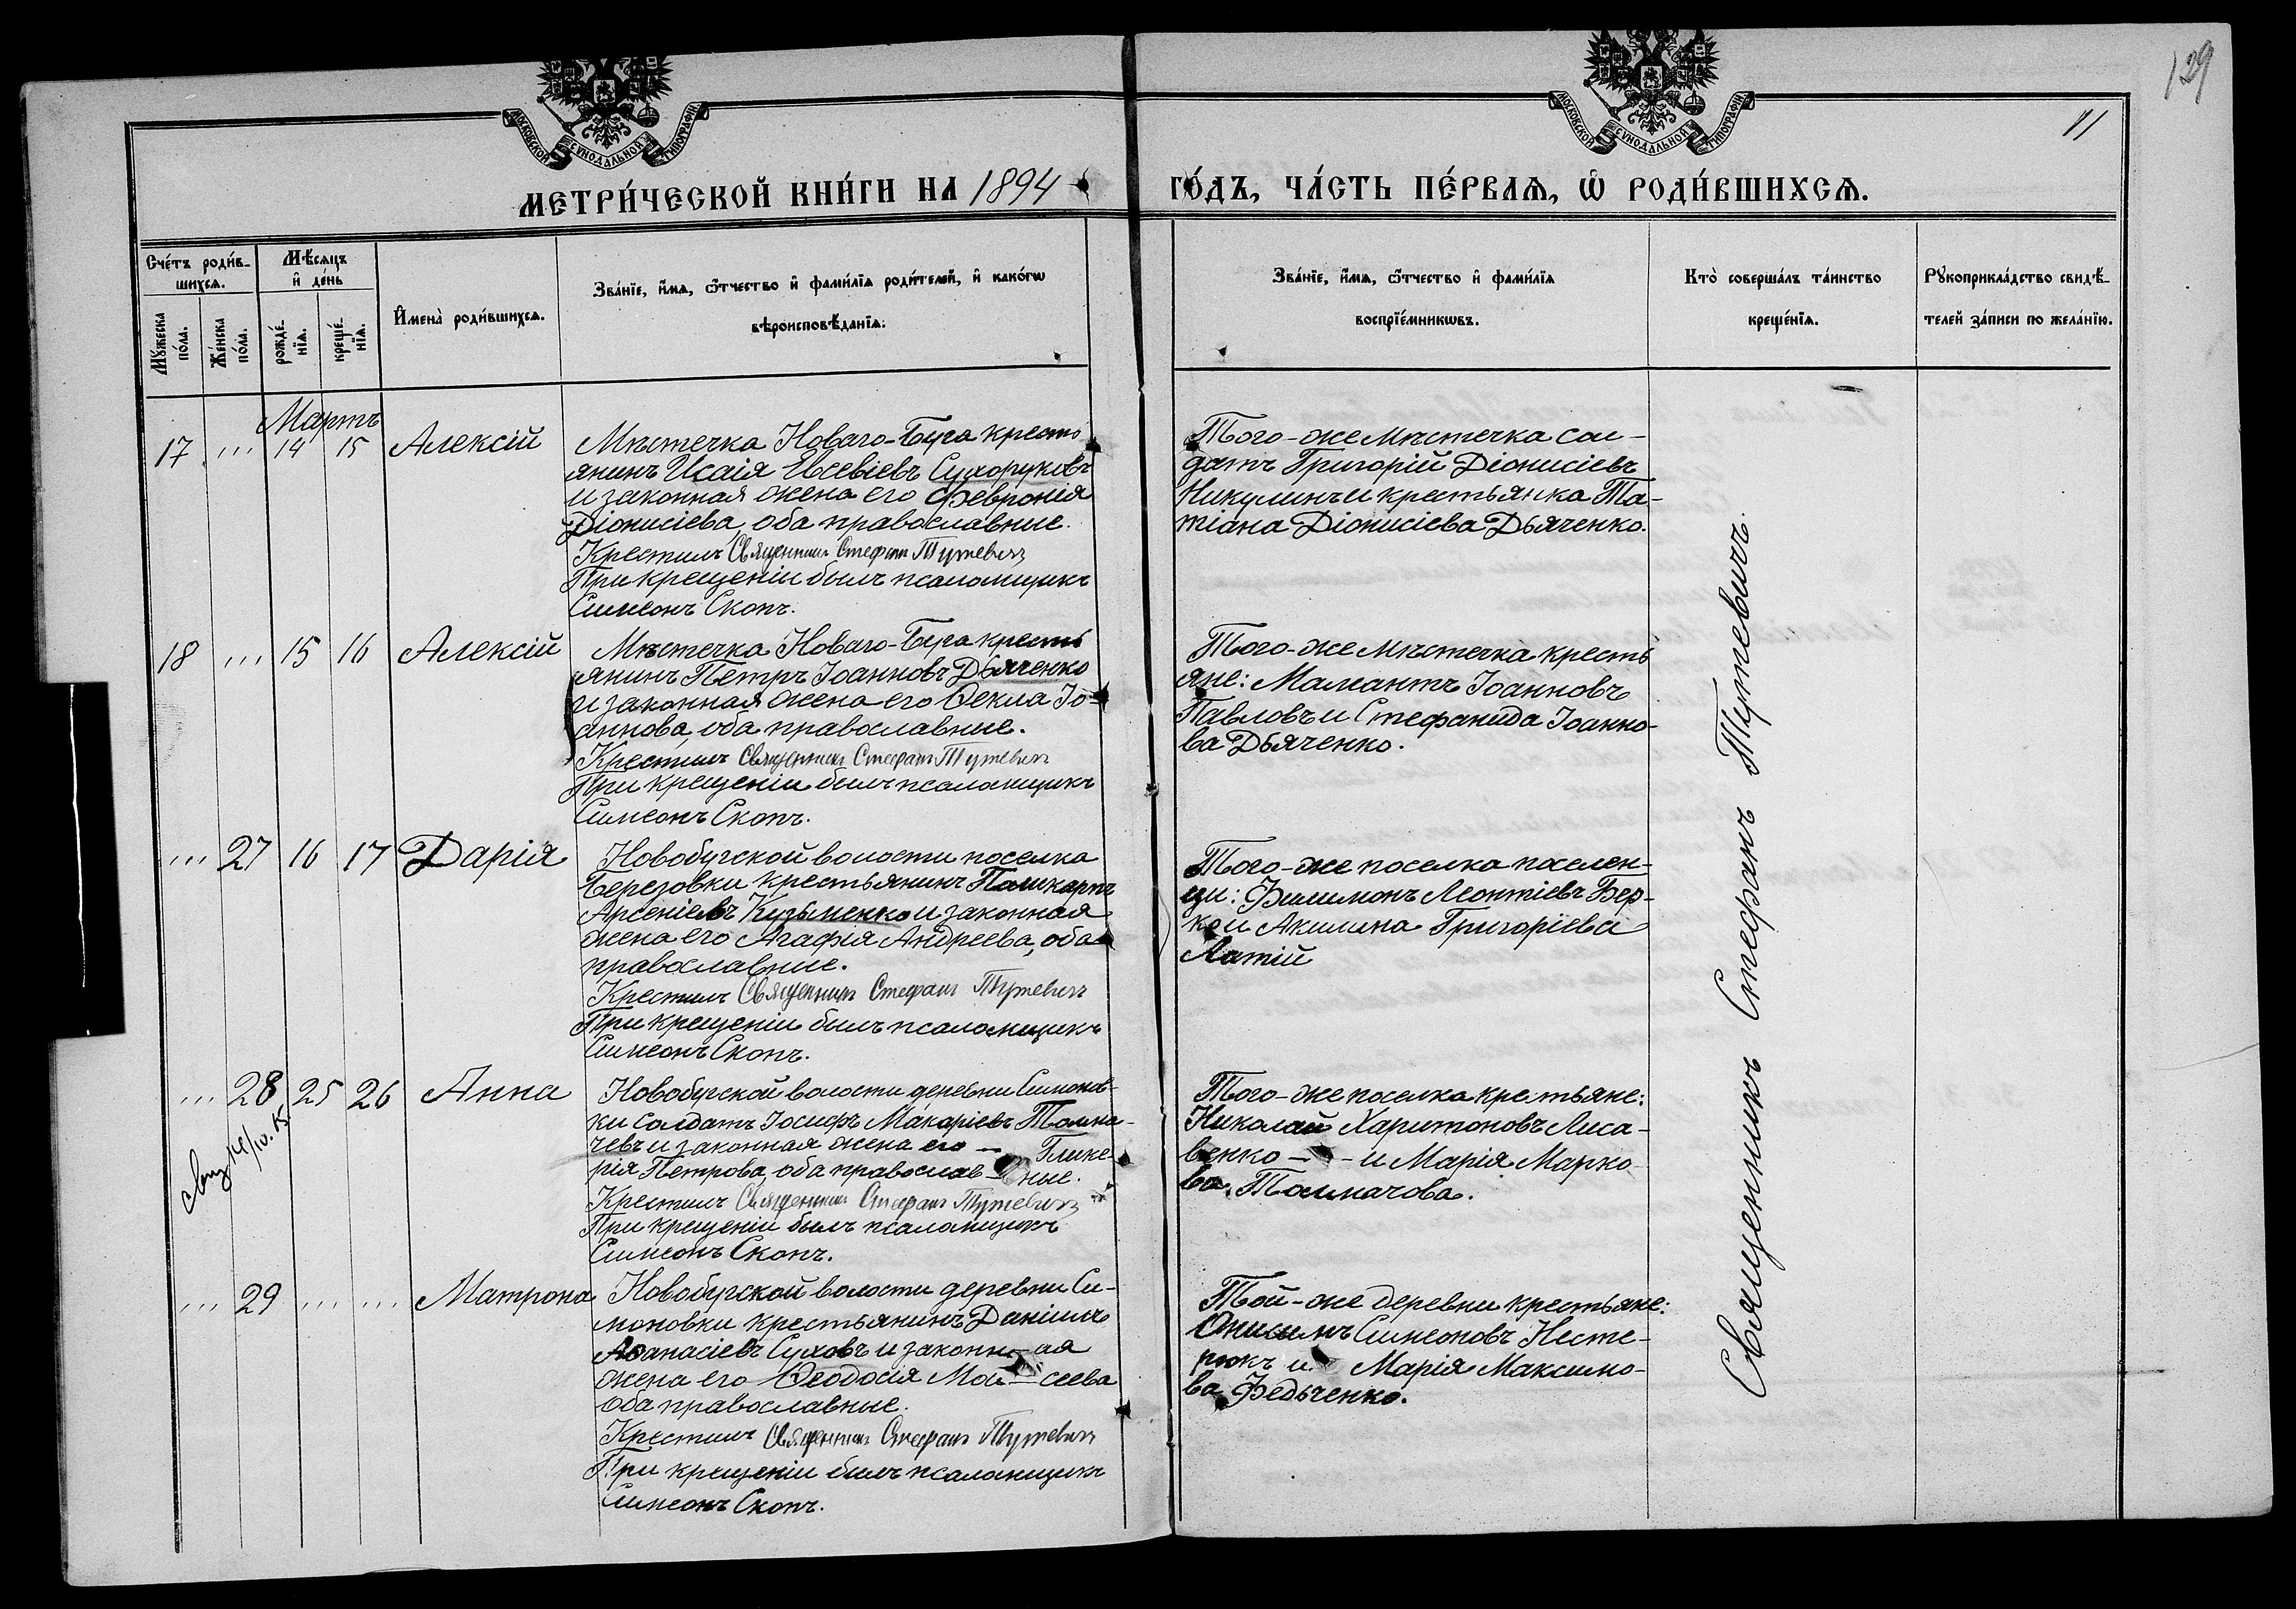 129
11
МОСКОВСКОЙ СѴНОДАЛЬНОЙ ТИПОГРАФІИ
МОСКОВСКОЙ СѴНОДАЛЬНОЙ ТИПОГРАФІИ
МЕТРИ́ЧЕСКОЙ КНИ́ГИ НА 1894 ГО́ДЪ, ЧА́СТЬ ПЕ́РВАѦ, Ѡ҆ РОДИ́ВШИХСѦ.
Сче́тъ роди́в-
шихсѧ.
Мꙋ́жеска по́ла.
Же́нска по́ла.
Мѣ́сѧцъ
и҆ де́нь
рожде́-
нїѧ.
креще́-
нїѧ.
И҆мена̀ роди́вшихсѧ.
Зва́нїе, и҆́мѧ, ѻ҆́тчество и҆ фами́лїѧ роди́телей, и҆ како́гѡ
вѣроисповѣ́данїѧ.
Зва́нїе, и҆́мѧ, ѻ҆́тчество и҆ фами́лїѧ
воспрїе́мникѡвъ.
Кто̀ соверша́лъ та́инство
креще́нїѧ.
Рꙋкоприкла́дство свидѣ́-
телей за́писи по жела́нїю.
Мартъ
17 ... 14 15 Алексій
Мѣстечка Новаго-Буга кресть
янинъ Исаія Евсевіевъ Сухоруковъ
и законная жена его Февронія
Діонисіева, оба православные.
Крестилъ Священникъ Стефанъ Тутевичъ
При крещеніи былъ псаломщикъ
Симеонъ Скопъ.
Того-же Мѣстечка сол-
датъ Григорій Діонисіевъ
Никулинъ и крестьянка Та-
тіана Діонисіева Дьяченко.
18 ... 15 16 Алексій
Мѣстечка Новаго-Буга кресть
янинъ Петръ Іоанновъ Дьяченко
и законная жена его Ѳекла Іо-
аннова, оба православные.
Крестилъ Священникъ Стефанъ Тутевичъ
При крещеніи былъ псаломщикъ
Симеонъ Скопъ.
Того-же мѣстечка кресть
яне: Мамантъ Іоанновъ
Павловъ и Стефанида Іоанно-
ва Дьяченко.
... 27 16 17 Дарія
Новобугской волости поселка
Березовки крестьянинъ Поликарпъ
Арсеніевъ Кузьменко и законная
жена его Агафія Андреева, оба
православные.
Крестилъ Священникъ Стефанъ Тутевичъ
При крещеніи былъ псаломщикъ
Симеонъ Скопъ.
Того-же поселка поселен-
цы: Филимонъ Леонтіевъ Бер-
ко и Акилина Григоріева
Лотій
... 28 25 26 Анна
Новобугской волости деревни Симонов-
ки солдатъ Іосифъ Макаріевъ Толма-
чевъ и законная жена его — Глике-
рія Петрова, оба православ-ные.
Крестилъ Священникъ Стефанъ Тутевичъ
При крещеніи былъ псаломщикъ
Симеонъ Скопъ.
Того-же поселка крестьяне:
Николай Харитоновъ Лиса-
венко — и Марія Марко-
ва Толмачова.
... 29 ... ... Матрона
Новобугской волости деревни Си-
моновки крестьянинъ Даніилъ
Аѳанасіевъ Суховъ и законн-ая
жена его Ѳеодосія Мои-сеева
оба православные.
Крестилъ Священникъ Стефанъ Тутевичъ
При крещеніи былъ псаломщикъ
Симеонъ Скопъ.
Той-же деревни крестьяне:
Онисимъ Симеоновъ Несте-
рюкъ и Марія Максимо-
ва Федьченко.
Священникъ Стефанъ Тутевичъ.